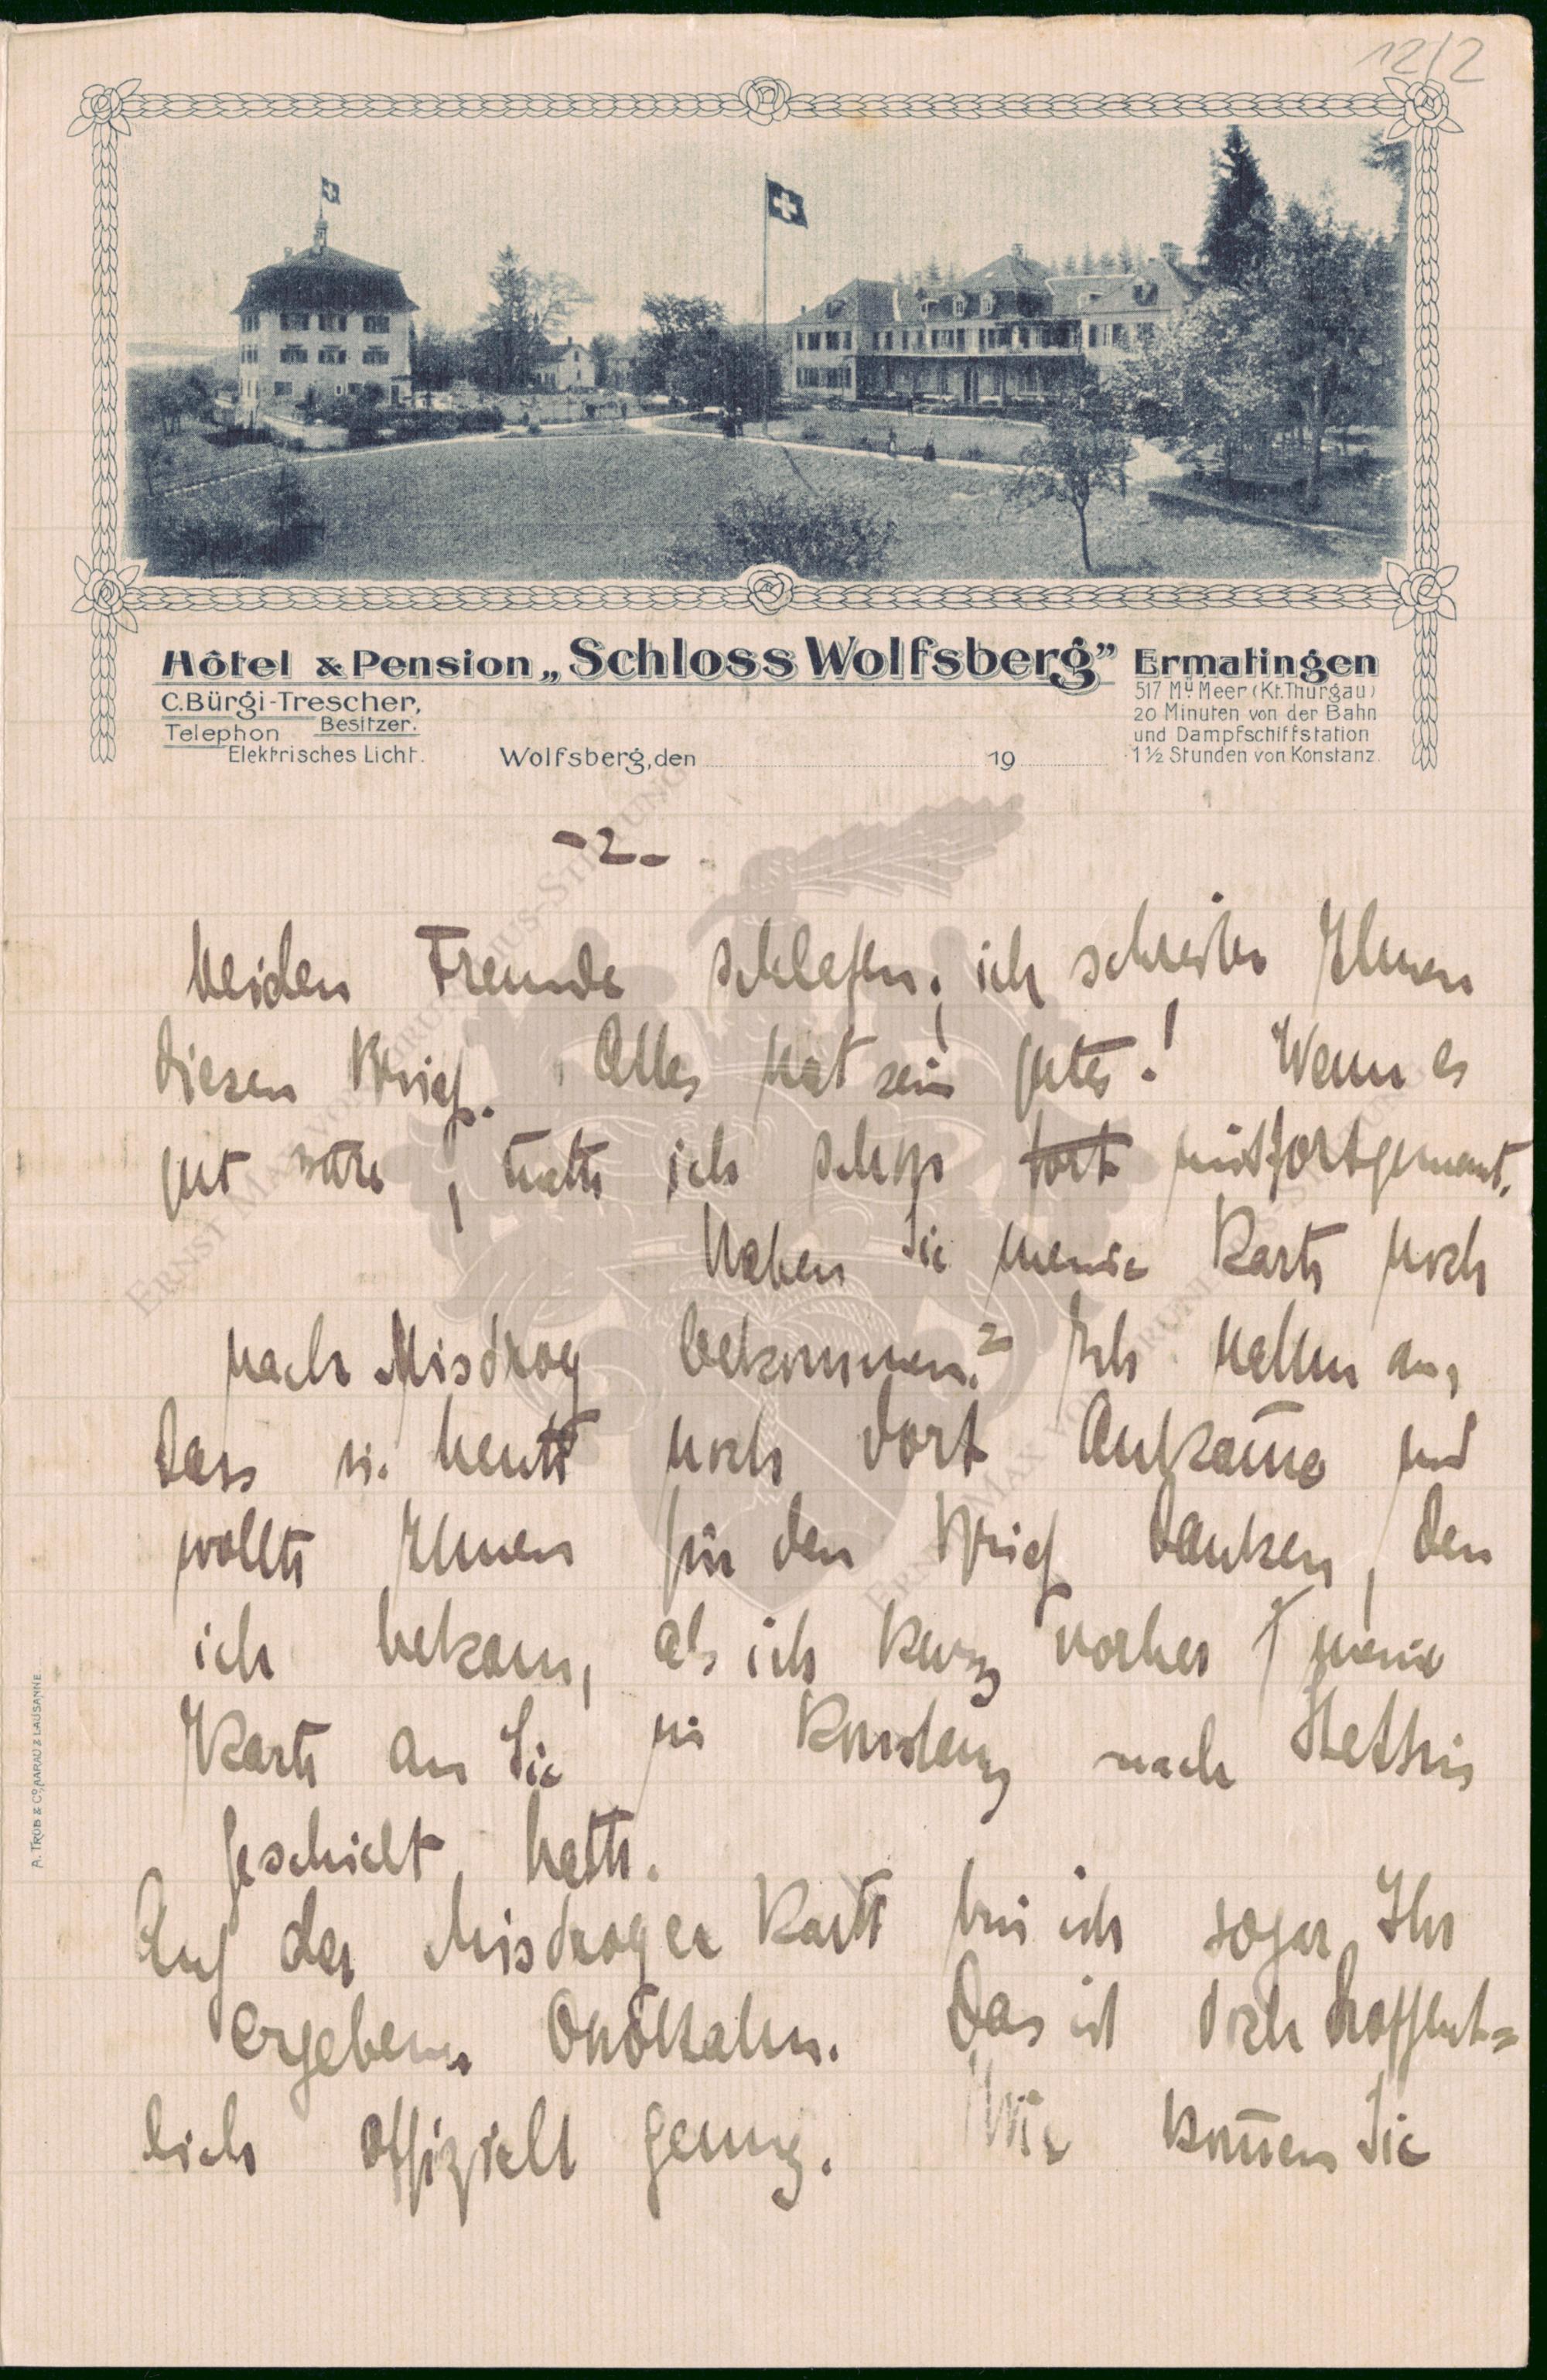 12/2
Hôtel & Pension „Schloss Wolfsberg” Ermatingen
C. Bürgi-Trescher,
Besitzer.
Telephon
Elektrisches Licht.
517 M ü Meer (Kt. Thurgau)
20 Minuten von der Bahn
und Dampfschiffstation
1 ½ Stunden von Konstanz.
Wolfsberg, den 19
-2-
beiden Freunde schlafen; ich schreibe Ihnen
diesen Brief. Alles hat sein gutes! Wenn es
gut wäre, hätte ich schon fort mitfortgemant.
Haben Sie meine Karte noch
nach Misdroy bekommen? Ich nahm an,
dass sie heute noch dort ankäme und
wollte Ihnen für den Brief danken, den
ich bekam, als ich kurz vorher meine
Karte an Sie in Konstanz nach Stettin
geschickt hatte.
Auf der Misdroyer Karte bin ich sogar Ihr
ergebener
Das ist doch hoffent=
lich offiziell genug. Wie können Sie
A. TRÜB & Co, AARAU & LAUSANNE
ERNST MAX VON GRUNELIUS-STIFTUNG